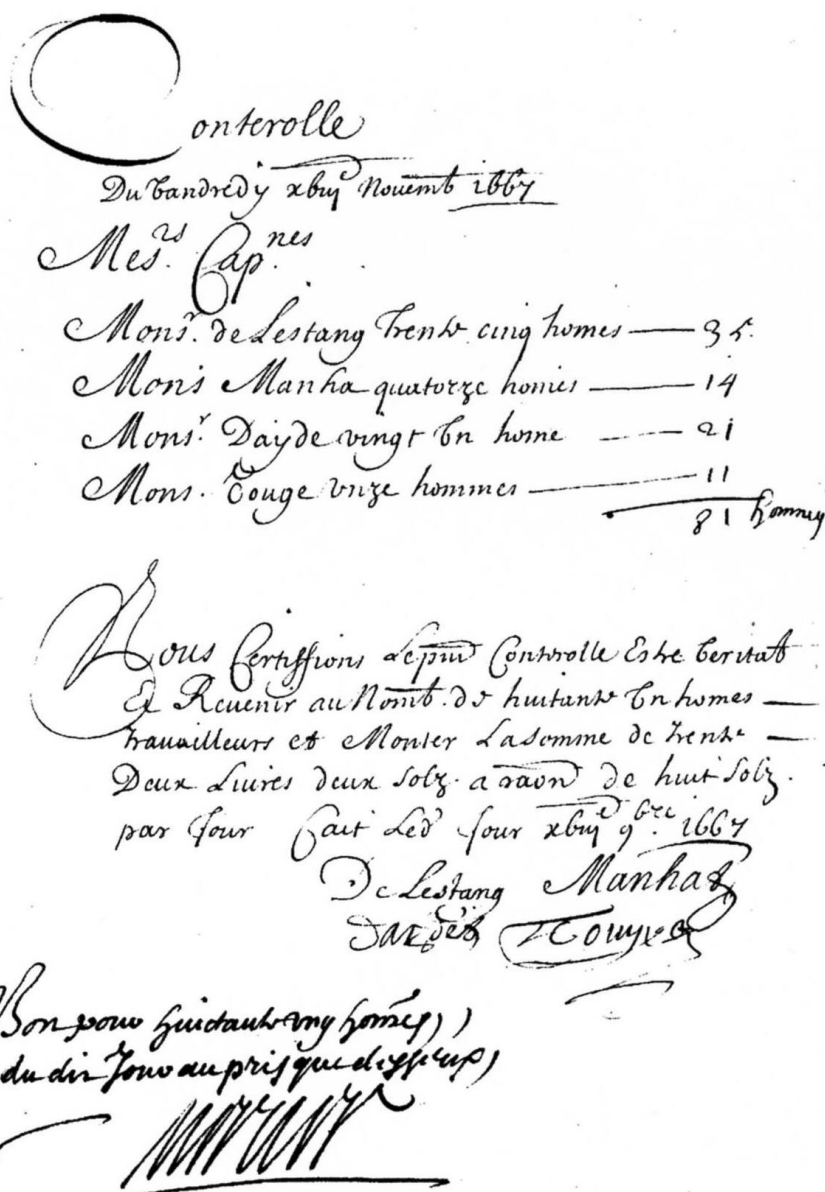 Conterolle
Du Vandredy xbiij^e Novemb 1667
Mes^rs. Cap^nes.
Mons^r. de Lestang Trente cinq homes — 35.
Mons Manha quatorze homes — 14
Mons^r. Dayde vingt Un home — 21
Mons. Touge Unze hommes — 11
81 hommes
Nous Certiffions Lepnt Conterolle Estre Veritab
Et Revenir au Nomb. de huitante Un homes —
travailleurs et Monter La somme de trente —
Deux Livres deux solz. a raon de huit solz.
par Jour fait Led Jour xbiij^e 9^bre 1667
De Lestang Manha
Dardes
Bon pour huictante ung homes,
du dit Jour au pris que dessus,